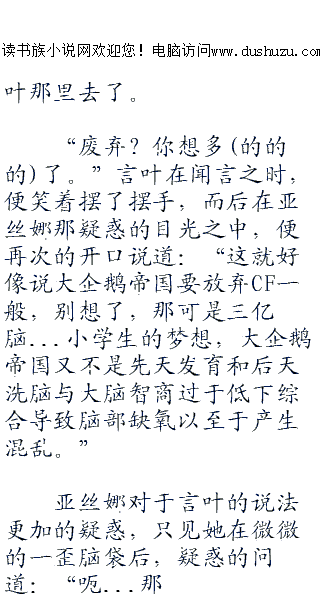 读书族小说网欢迎您！电脑访问www.dushuzu.com
叶那里去了。
“废弃？你想多(的的
的)了。”言叶在闻言之时，
便笑着摆了摆手，而后在亚
丝娜那疑惑的目光之中，便
再次的开口说道：“这就好
像说大企鹅帝国要放弃CF一
般，别想了，那可是三亿
脑...小学生的梦想，大企鹅
帝国又不是先天发育和后天
洗脑与大脑智商过于低下综
合导致脑部缺氧以至于产生
混乱。”
亚丝娜对于言叶的说法
更加的疑惑，只见她在微微
的一歪脑袋后，疑惑的问
道：“呃...那